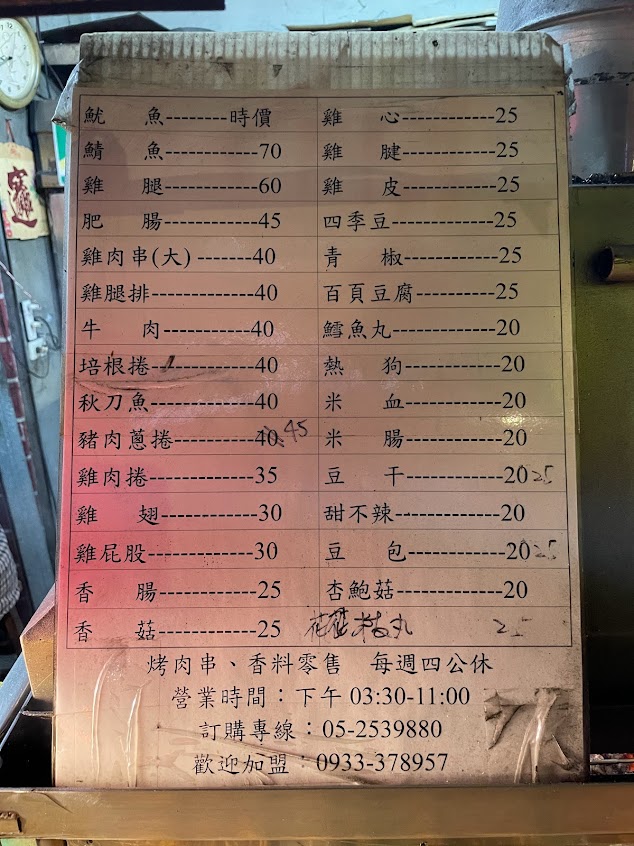 魷 魚--------時價
鯖 魚------------70
雞 腿-----------60
肥 腸-----------45
雞肉串(大) -------40
雞腿排-------------40
牛 肉------------40
培根捲-------------40
秋刀魚-------------40
豬肉蔥捲----------40 45
雞肉捲-------------35
雞 翅------------30
雞屁股-------------30
香 腸------------25
香 菇------------25
雞 心------------25
雞 腱------------25
雞 皮------------25
四季豆-------------25
青 椒------------25
百頁豆腐----------25
鱈魚丸-------------20
熱 狗------------20
米 血------------20
米 腸------------20
豆 干------------20 25
甜不辣-------------20
豆 包------------20 25
杏鮑菇-------------20
花枝丸 25
烤肉串、香料零售 每週四公休
營業時間：下午 03:30-11:00
訂購專線：05-2539880
歡迎加盟：0933-378957